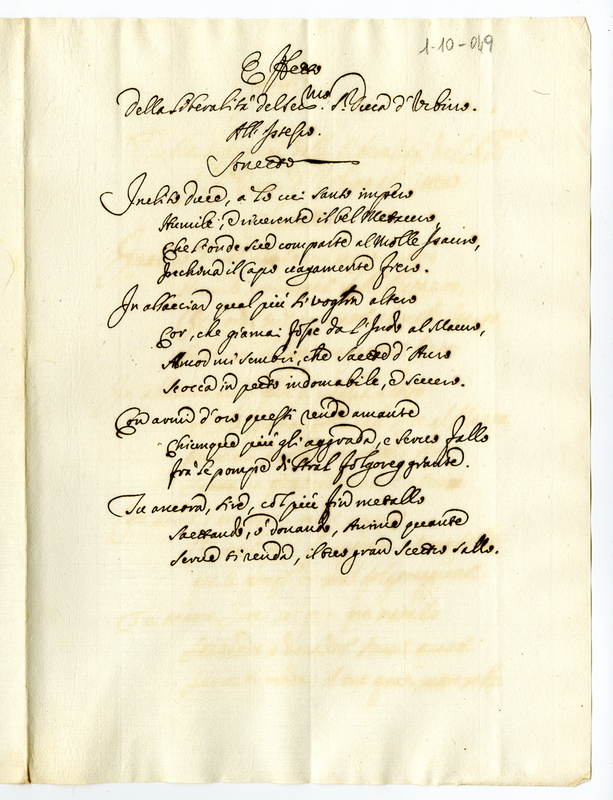 1-10-049
Effetto
Della Liberalità del Ser.mo S.r Duca d'Urbino.
All'istesso.
Sonetto
Inclito duce, a lo cui santo impero
Humile, e riverente il bel Metauro,
Che l'onde sue comparte al molle Isauro,
Inchina il Capo vagamente fiero.
In allacciar qual più ti voglia altero
Cor, che giamai fosse da l'Indo al Mauro,
Amor mi sembri, che saette d'Auro
Scocca in petto indomabile, e severo.
Con armi d'oro questi rende amante
Chiunque più gli aggrada, e servo fallo
fra le pompe di stral folgoreggiante.
Tu ancora, sire, col più fin metallo
Saettando, e donando, Anime quante
Serve ti renda, il tuo gran Scettro sallo.